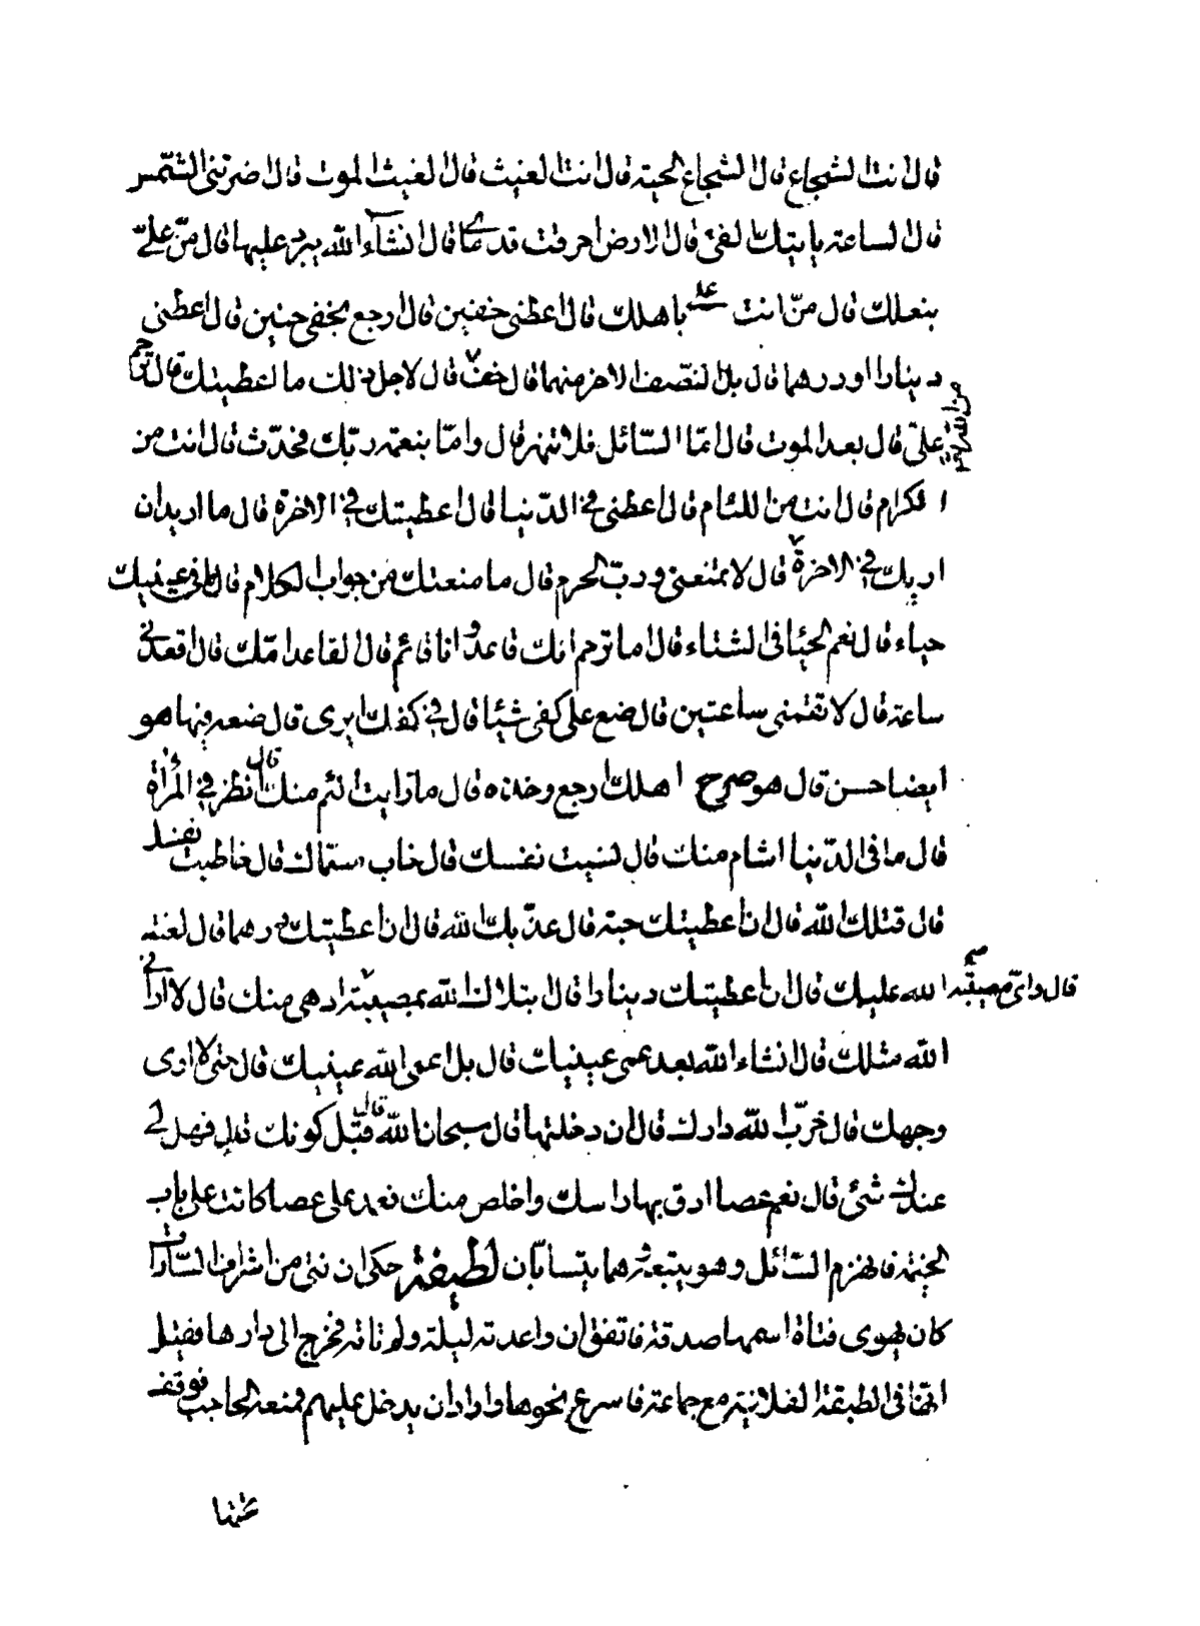 قال انت الشجاع قال الشجاع الحية قال انت الغيث قال الغيث الموت قال ضرتنى الشمس
قال الساعة ياتيك الفئ قال الارض احرقت قدماى قال انشاء الله يبرد عليها قال منّ علىّ
بنعلك قال منّ انت على باهلك قال اعطنى خفين قال ارجع بخفى حنين قال اعطنى
دينارا او درهما قال بل النصف الاخر منهما قال خف قال لاجل ذلك ما اعطيتك قال ترحم
علىّ قال بعد الموت قال امّا السّائل فلا تنهر قال وامّا بنعمة ربّك فحدّث قال انت من
الكرام قال انت من اللئام قال اعطنى فى الدّنيا قال اعطيتك فى الاخرة قال ما اريد ان
اريك فى الاخرة قال لا تمنعنى وربّ الحرم قال ما منعتك من جواب الكلام قال ما فى عينيك
حياء قال نعم الحيا فى الشتاء قال اما ترحم انك قاعد وانا قائم قال القاعد امّك قال اقعدنى
ساعة قال لا تقمنى ساعتين قال ضع على كفى شيئا قال فى كفك ايرى قال ضعه فيها هو
ايضا حسن قال هو صرح اهلك ارجع وخذه قال ما رايت الئم منك قال انظر فى المراة
قال ما فى الدّنيا اشام منك قال نسيت نفسك قال خاب سمّاك قال خاطبت نفسك
قال قتلك الله قال ان اعطيتك حبة قال عذّبك الله قال ان اعطيتك درهما قال لعنة
الله عليك قال ان اعطيتك دينارا قال بتلاك الله بمصيبة ادهى منك قال لا ارانى
قال واىّ مصيبة
الله مثلك قال انشاء الله بعد عمى عينيك قال بل اعمى الله عينيك قال حتى لا ارى
وجهك قال خرّب الله دارك قال ان دخلتها قال سبحان الله قال قبل كونك قال فهل لى
عندك شئ قال نعم عصا ادق بها راسك واخلص منك فعمد على عصا كانت على باب
الخيمة فانهزم السّائل وهو يتبعه وهما يتسابّان لطيفة حكى ان فتى من اشراف السّادات
كان يهوى فتاة اسمها صدقة فاتفق ان واعدته ليلة ولم تاته فخرج الى دارها فقيل
انها فى الطبقة الفلانية مع جماعة فاسرع نحوها واراد ان يدخل عليهم فمنعه الحاجب فوقف